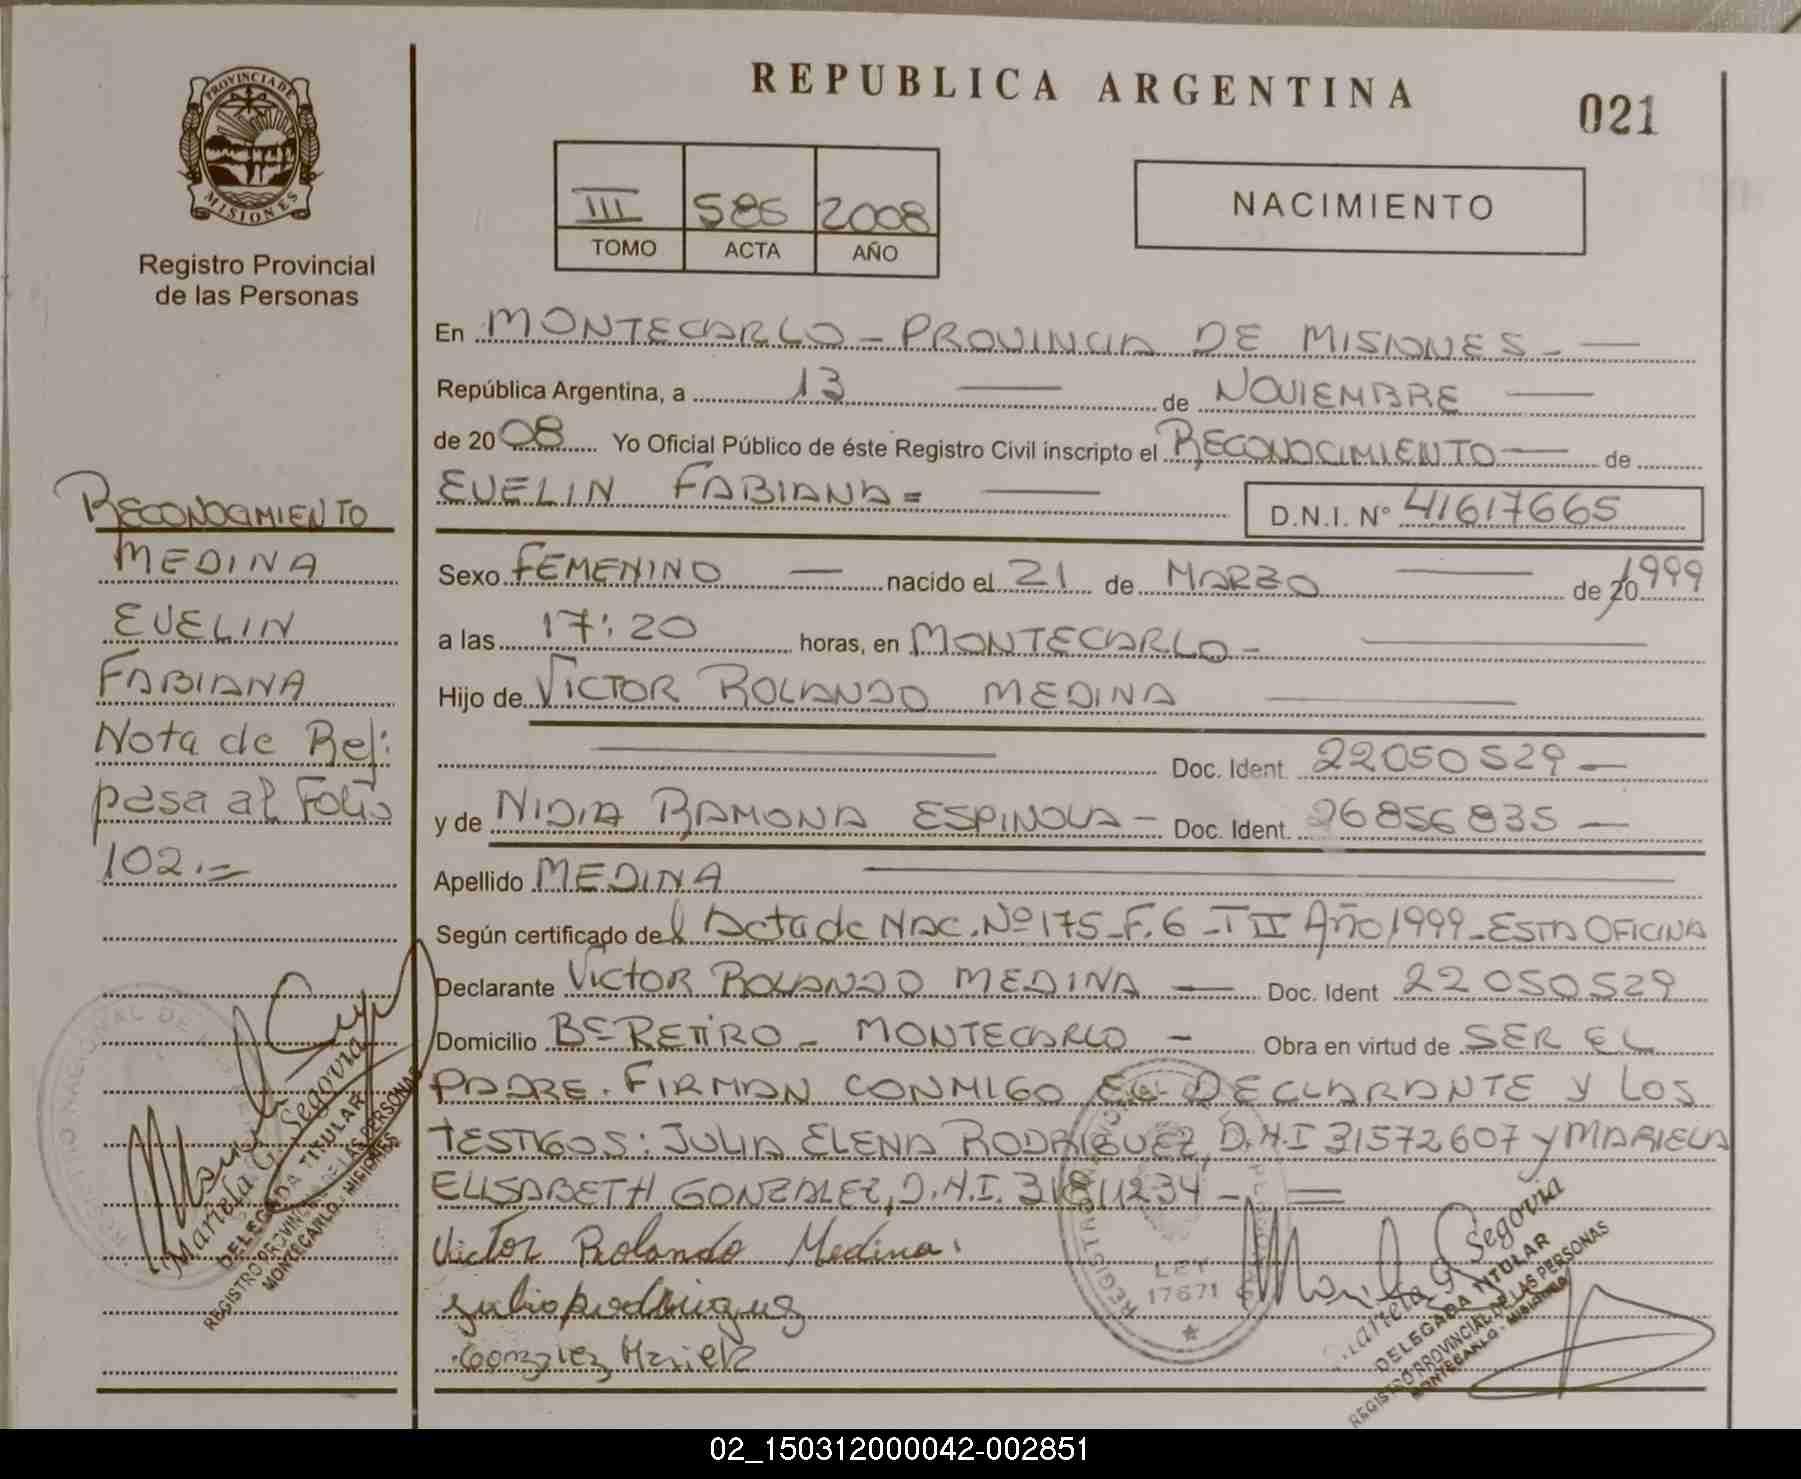 REPUBLICA ARGENTINA
021
PROVINCIA DE
MISIONES
Registro Provincial
de las Personas
III 586 2008
TOMO ACTA AÑO
NACIMIENTO
En MONTECARLO - PROVINCIA DE MISIONES -
República Argentina, a 13 de NOVIEMBRE
de 2008 Yo Oficial Público de éste Registro Civil inscripto el RECONOCIMIENTO de
EVELIN FABIANA = D.N.I. N° 41617665
Sexo FEMENINO nacido el 21 de MARZO de 20 1999
a las 17:20 horas, en MONTECARLO -
Hijo de VICTOR ROLANDO MEDINA
Doc. Ident. 22050529 -
y de NIDIA RAMONA ESPINOLA - Doc. Ident. 26856835 -
Apellido MEDINA
Según certificado del Acta de NAC. Nº 175 - F. 6 - T II Año 1999 - ESTA OFICINA
Declarante VICTOR ROLANDO MEDINA - Doc. Ident 22050529
Domicilio Bº RETIRO - MONTECARLO - Obra en virtud de SER EL
PADRE. FIRMAN CONMIGO EL DECLARANTE Y LOS
TESTIGOS: JULIA ELENA RODRIGUEZ, D.N.I 31572607 y MARIELA
ELISABETH GONZALEZ, D.N.I. 31811234 -
Victor Rolando Medina.
Gonzalez Mariela
RECONOCIMIENTO
MEDINA
EVELIN
FABIANA
Nota de Ref:
pasa al Folio
102.=
Mariela G. Segovia
DELEGADA TITULAR
REGISTRO PROVINCIAL DE LAS PERSONAS
MONTECARLO - MISIONES
LEY
17671
Mariela G. Segovia
DELEGADA TITULAR
REGISTRO PROVINCIAL DE LAS PERSONAS
MONTECARLO - MISIONES
02_150312000042-002851